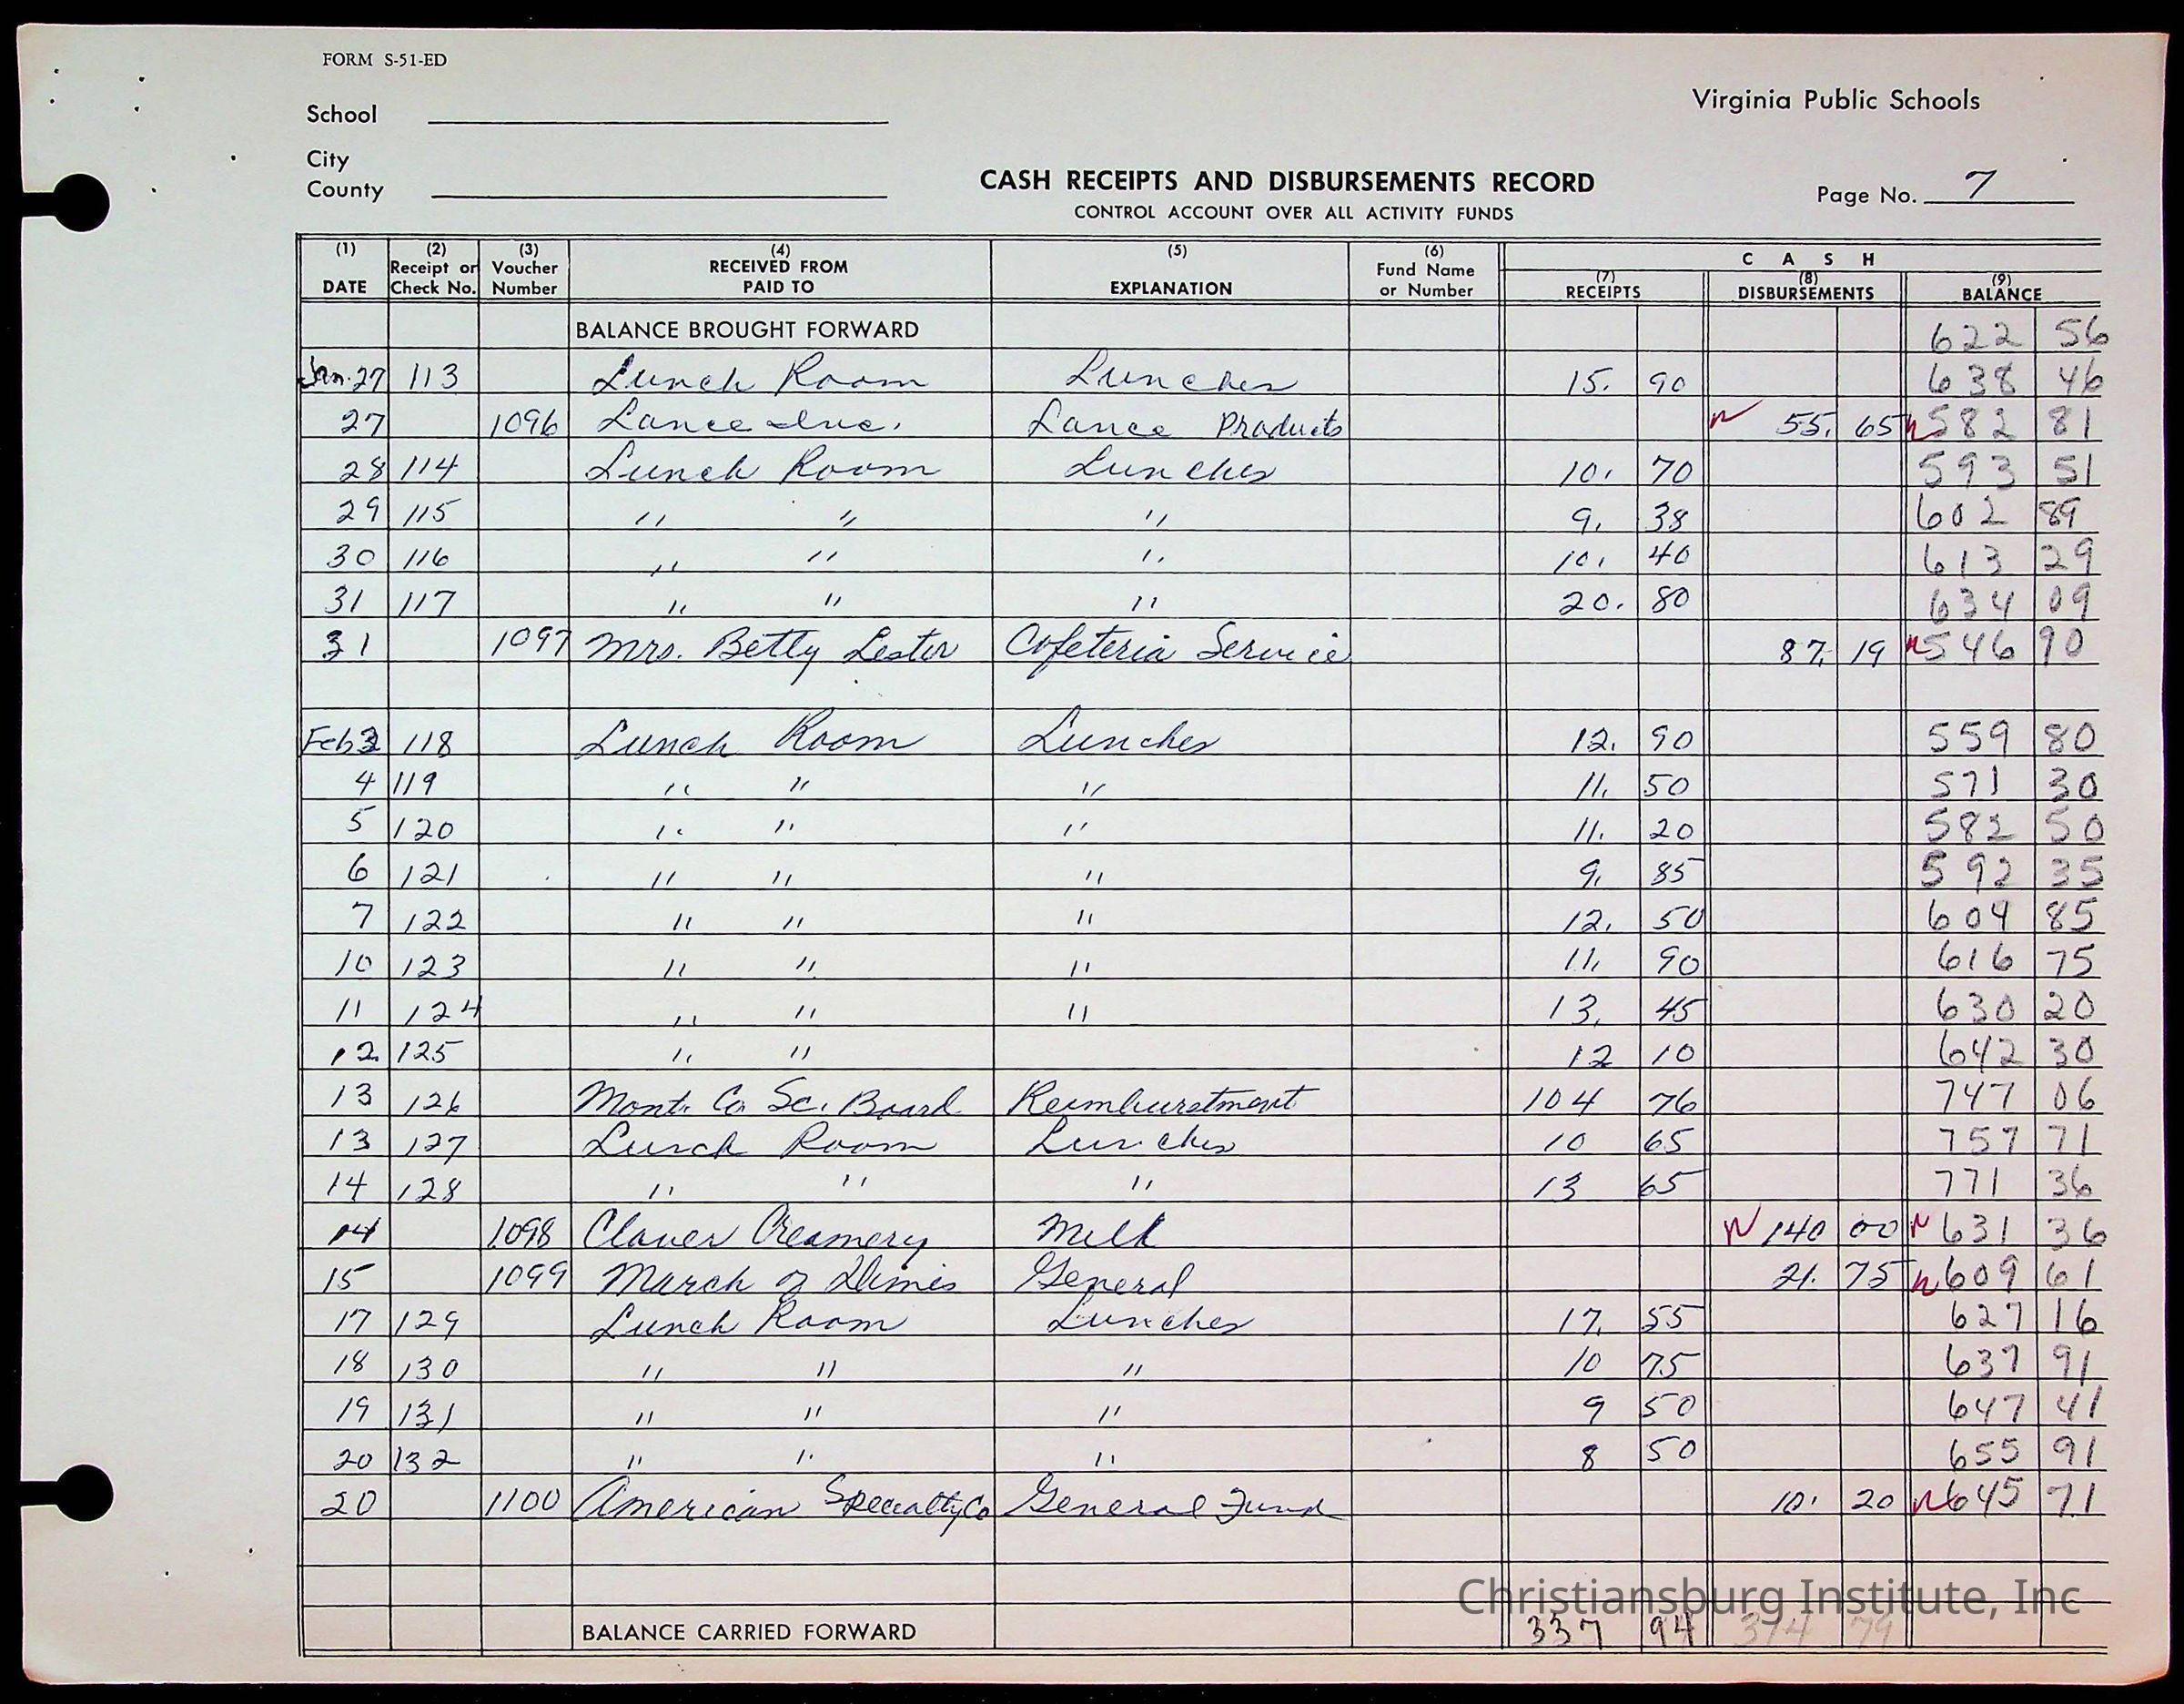 FORM S-51-ED
Virginia Public Schools
School
City
County
CASH RECEIPTS AND DISBURSEMENTS RECORD
CONTROL ACCOUNT OVER ALL ACTIVITY FUNDS
Page No. 7
(1) DATE (2) Receipt or Check No. (3) Voucher Number (4) RECEIVED FROM PAID TO (5) EXPLANATION (6) Fund Name or Number CASH (7) RECEIPTS (8) DISBURSEMENTS (9) BALANCE
BALANCE BROUGHT FORWARD 622 56
Jan. 27 113 Lunch Room Lunches 15. 90 638 46
27 1096 Lance Inc. Lance Products 55. 65 582 81
28 114 Lunch Room Lunches 10. 70 593 51
29 115 " " " 9. 38 602 89
30 116 " " " 10. 40 613 29
31 117 " " " 20. 80 634 09
31 1097 Mrs. Betty Lester Cafeteria Service 87. 19 546 90
Feb 3 118 Lunch Room Lunches 12. 90 559 80
4 119 " " " 11. 50 571 30
5 120 " " " 11. 20 582 50
6 121 " " " 9. 85 592 35
7 122 " " " 12. 50 604 85
10 123 " " " 11. 90 616 75
11 124 " " " 13. 45 630 20
12 125 " " 12 10 642 30
13 126 Mont. Co Sc. Board Reimburstment 104 76 747 06
13 127 Lunch Room Lunches 10 65 757 71
14 128 " " " 13 65 771 36
14 1098 Clover Creamery Milk 140 00 631 36
15 1099 March of Dimes General 21. 75 609 61
17 129 Lunch Room Lunches 17. 55 627 16
18 130 " " " 10 75 637 91
19 131 " " " 9 50 647 41
20 132 " " " 8 50 655 91
20 1100 American Specialty Co General Fund 10. 20 645 71
Christiansburg Institute, Inc
BALANCE CARRIED FORWARD 337 94 314 79